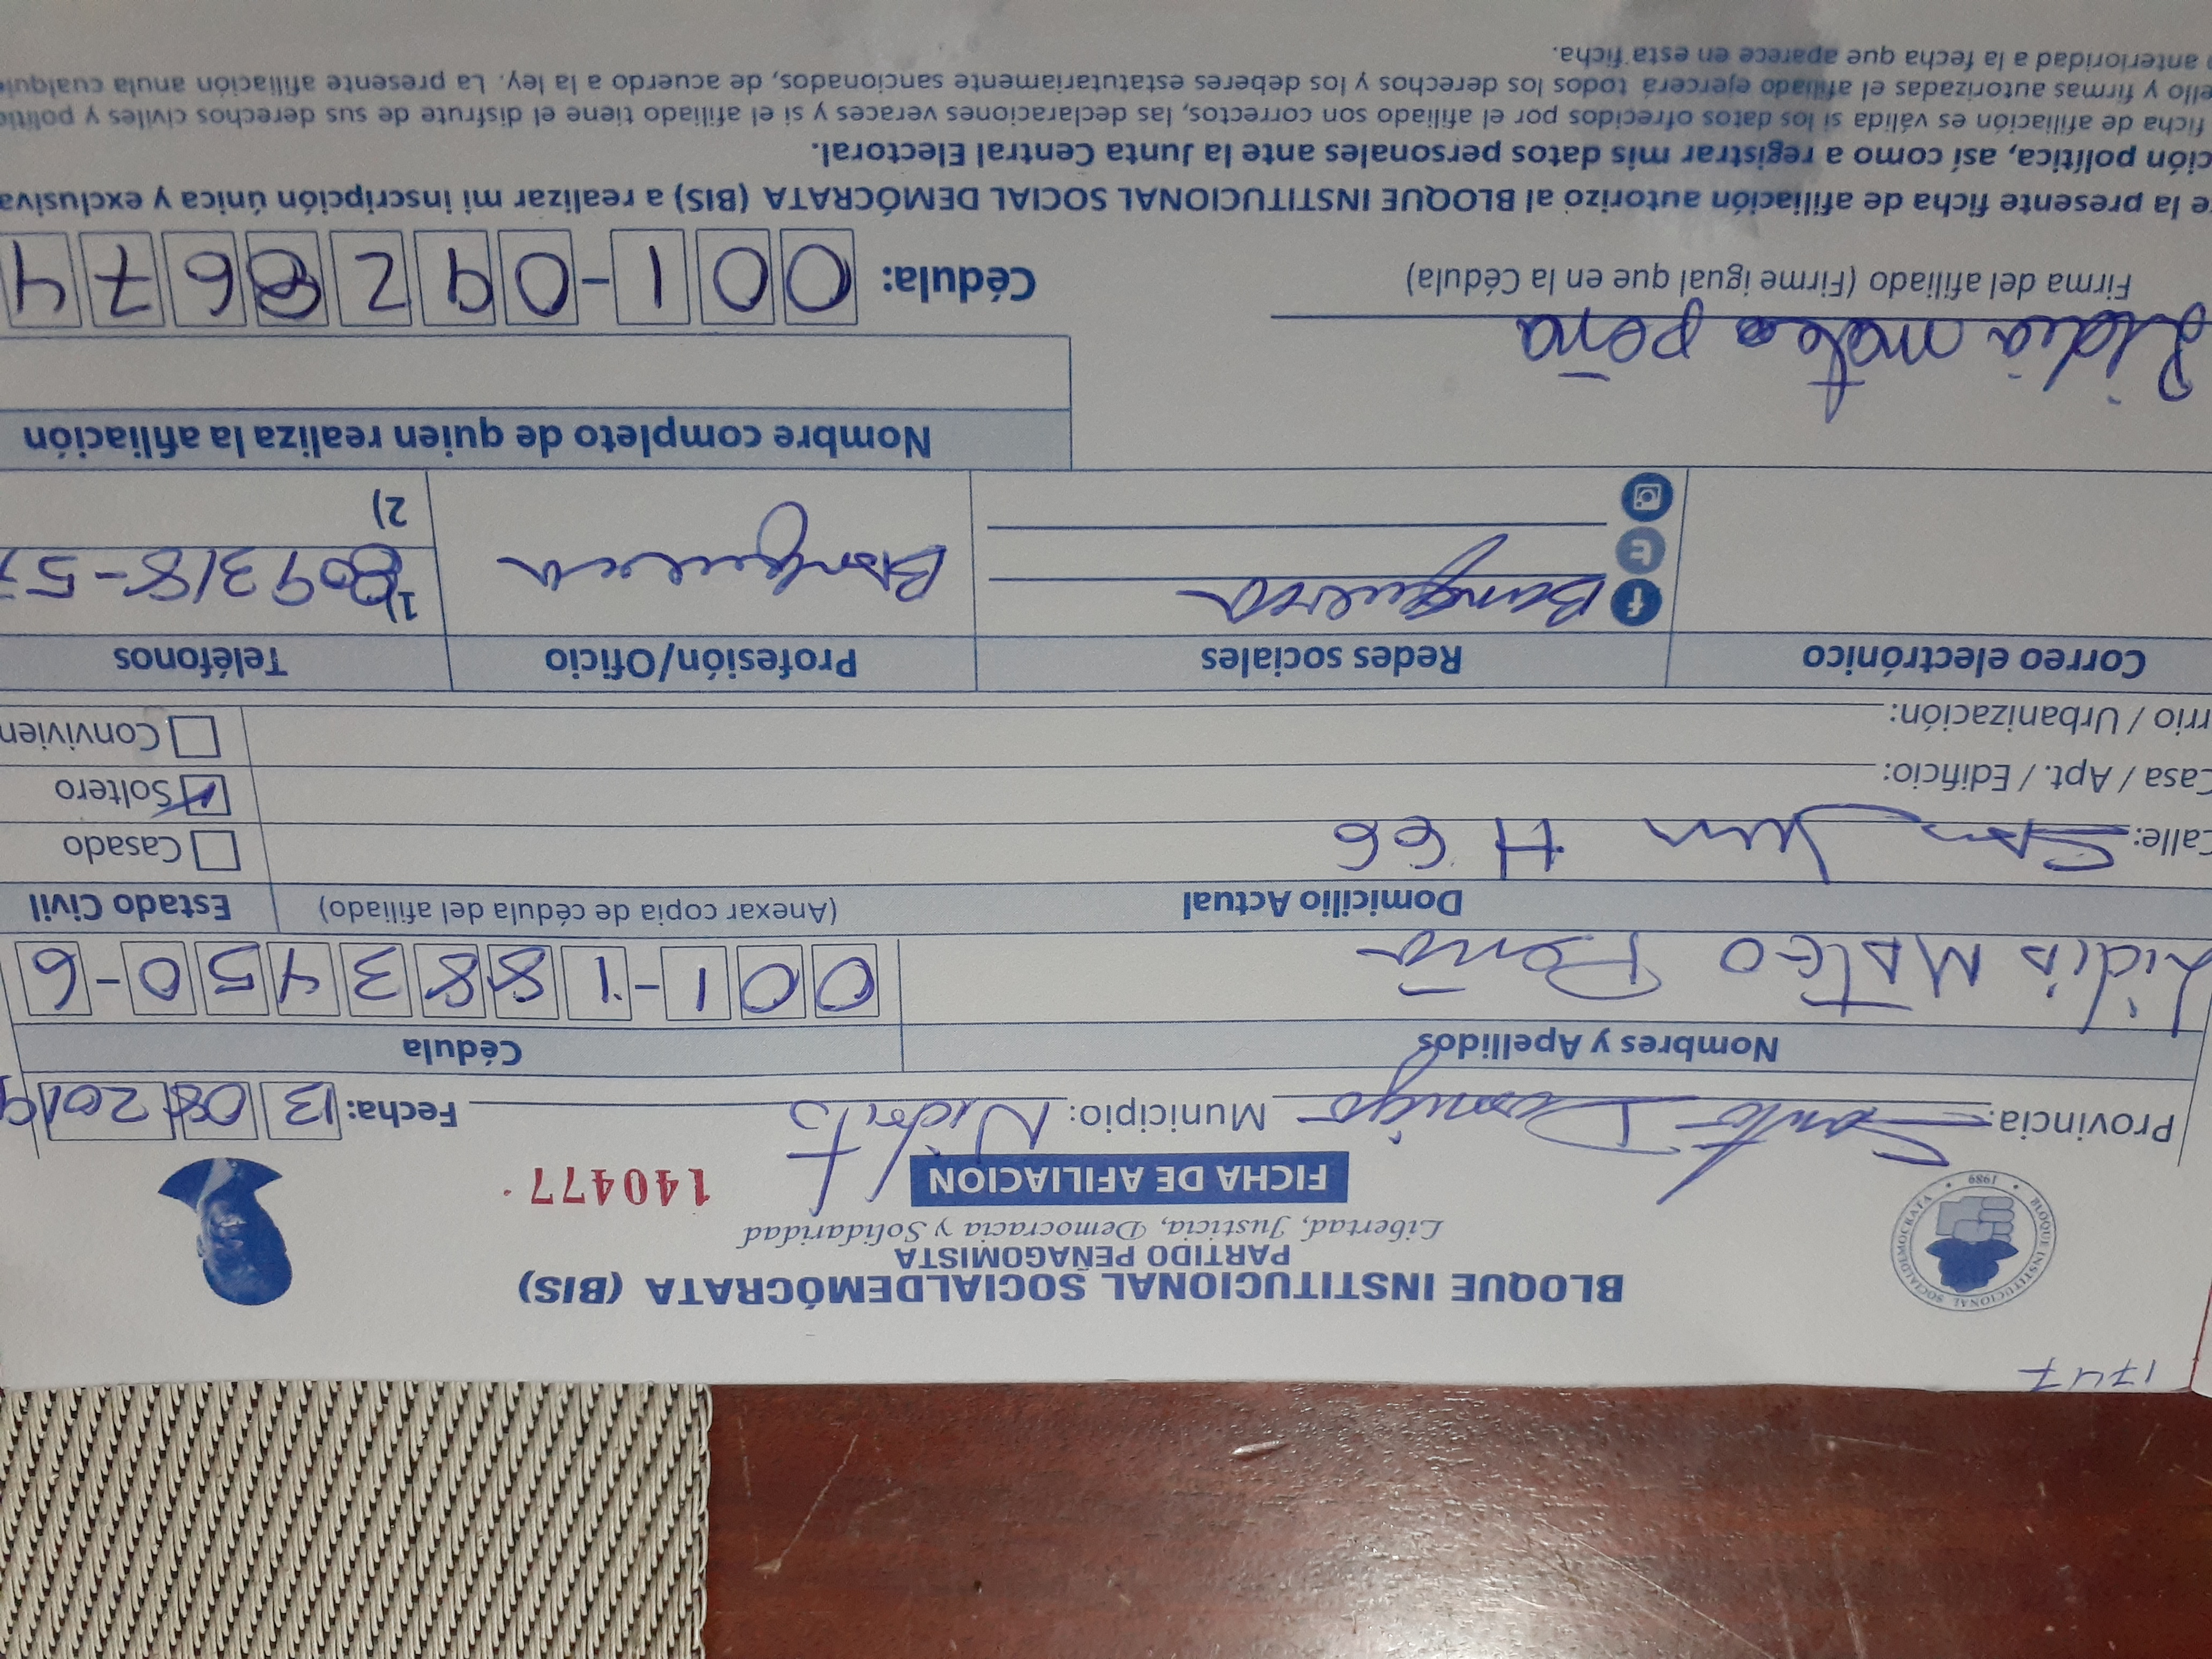 1747
BLOQUE INSTITUCIONAL SOCIALDEMÓCRATA (BIS)
PARTIDO PEÑAGOMISTA
Libertad, Justicia, Democracia y Solidaridad
BLOQUE INSTITUCIONAL SOCIALDEMOCRATA • 1989 •
FICHA DE AFILIACION
140477
Provincia: Santo Domingo Municipio: Fecha: 13 08 2019
Nombres y Apellidos Cédula
Lidia Mateo Peña 001-1883450-6
Domicilio Actual (Anexar copia de cédula del afiliado) Estado Civil
Calle: San Juan # 66 Casado
Casa / Apt. / Edificio: Soltero
rrio / Urbanización: Convivien
Correo electrónico Redes sociales Profesión/Oficio Teléfonos
Banquera Banquera 1) 809 318-57
2)
Nombre completo de quien realiza la afiliación
Lidia mateo peña
Firma del afiliado (Firme igual que en la Cédula) Cédula: 001-0928674
e la presente ficha de afiliación autorizo al BLOQUE INSTITUCIONAL SOCIAL DEMÓCRATA (BIS) a realizar mi inscripción única y exclusiva
ción política, así como a registrar mis datos personales ante la Junta Central Electoral.
ficha de afiliación es válida si los datos ofrecidos por el afiliado son correctos, las declaraciones veraces y si el afiliado tiene el disfrute de sus derechos civiles y polític
ello y firmas autorizadas el afiliado ejercerá todos los derechos y los deberes estatutariamente sancionados, de acuerdo a la ley. La presente afiliación anula cualqui
anterioridad a la fecha que aparece en esta ficha.